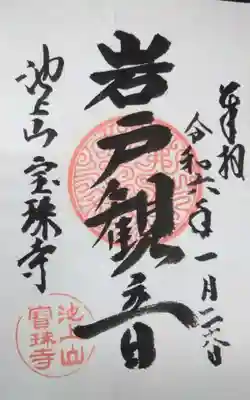 奉拝
令和六年一月二日
岩戸観音
池上山宝珠寺
池上山
寳珠寺